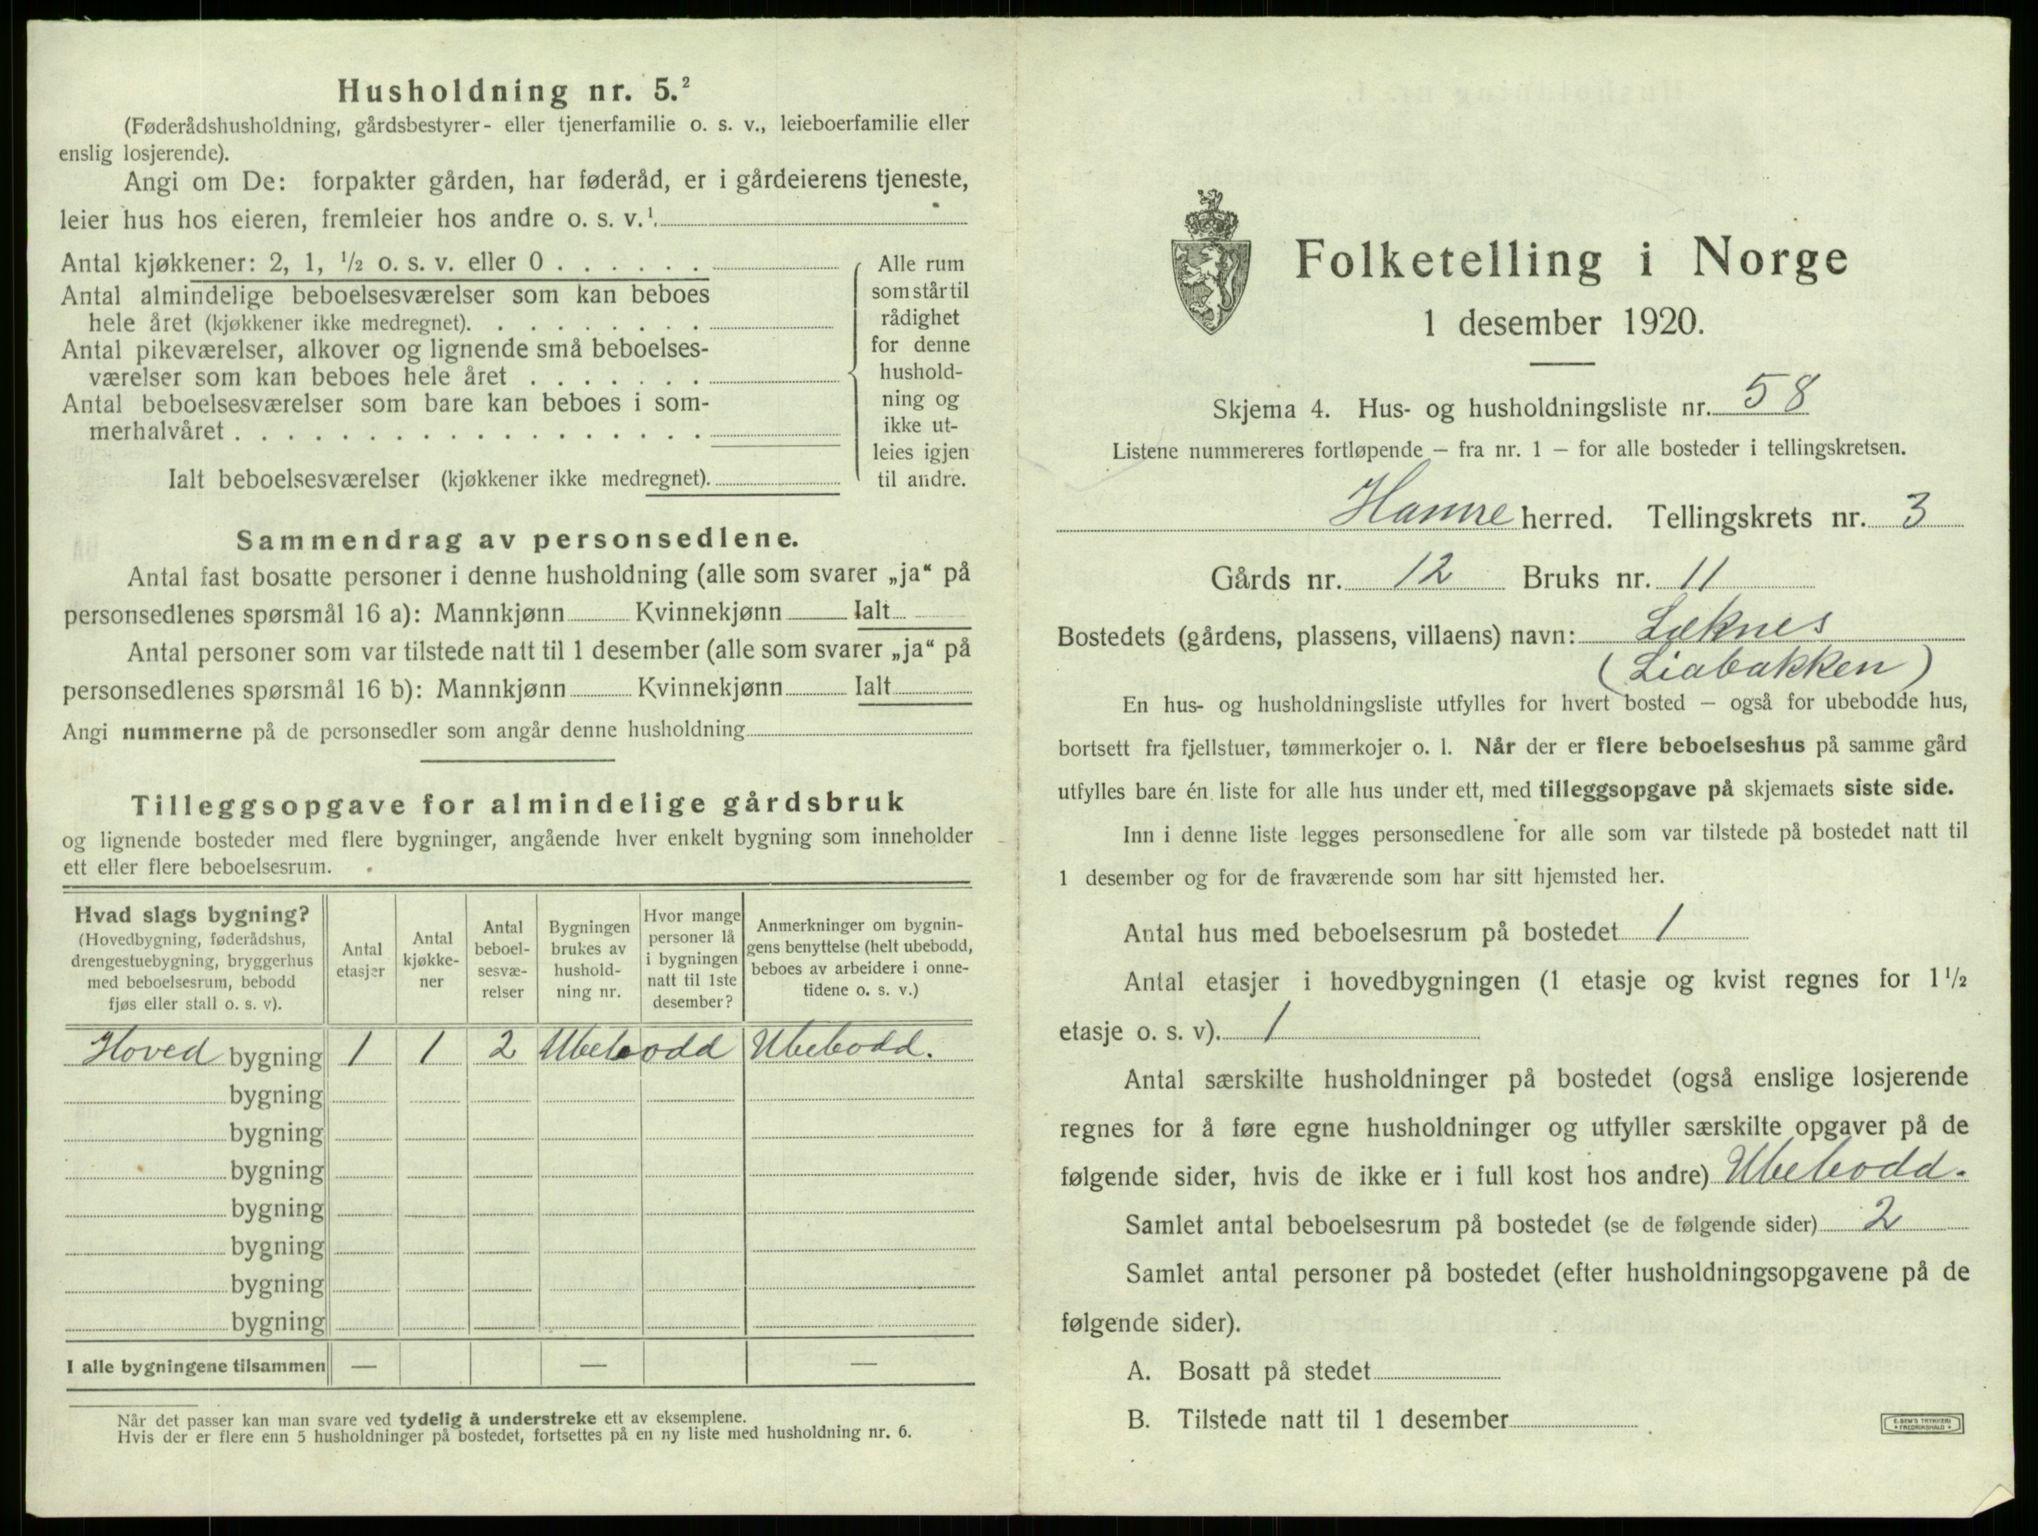 Husholdning nr. 5.²
(Føderådshusholdning, gårdsbestyrer- eller tjenerfamilie o. s. v., leieboerfamilie eller
enslig losjerende).
Angi om De: forpakter gården, har føderåd, er i gårdeierens tjeneste,
leier hus hos eieren, fremleier hos andre o. s. v.¹
Antal kjøkkener: 2, 1, ½ o. s. v. eller 0 . . . . . .
Antal almindelige beboelsesværelser som kan beboes
hele året (kjøkkener ikke medregnet). . . . . . . . .
Antal pikeværelser, alkover og lignende små beboelses-
værelser som kan beboes hele året . . . . . . .
Antal beboelsesværelser som bare kan beboes i som-
merhalvåret . . . . . . . . . . . . . . . . . .
Ialt beboelsesværelser (kjøkkener ikke medregnet).
Alle rum
som står til
rådighet
for denne
hushold-
ning og
ikke ut-
leies igjen
til andre.
Sammendrag av personsedlene.
Antal fast bosatte personer i denne husholdning (alle som svarer „ja“ på
personsedlenes spørsmål 16 a): Mannkjønn Kvinnekjønn Ialt
Antal personer som var tilstede natt til 1 desember (alle som svarer „ja“ på
personsedlenes spørsmål 16 b): Mannkjønn Kvinnekjønn Ialt
Angi nummerne på de personsedler som angår denne husholdning
Tilleggsopgave for almindelige gårdsbruk
og lignende bosteder med flere bygninger, angående hver enkelt bygning som inneholder
ett eller flere beboelsesrum.
Hvad slags bygning?
(Hovedbygning, føderådshus,
drengestuebygning, bryggerhus
med beboelsesrum, bebodd
fjøs eller stall o. s. v).
Antal
etasjer
Antal
kjøkke-
ner
Antal
beboel-
sesvæ-
relser
Bygningen
brukes av
hushold-
ning nr.
Hvor mange
personer lå
i bygningen
natt til 1ste
desember?
Anmerkninger om bygnin-
gens benyttelse (helt ubebodd,
beboes av arbeidere i onne-
tidene o. s. v.)
Hoved bygning 1 1 2 Ubebodd Ubebodd.
bygning
bygning
bygning
bygning
bygning
bygning
bygning
I alle bygningene tilsammen — — —
Når det passer kan man svare ved tydelig å understreke ett av eksemplene.
Hvis der er flere enn 5 husholdninger på bostedet, fortsettes på en ny liste med husholdning nr. 6.
Folketelling i Norge
1 desember 1920.
Skjema 4. Hus- og husholdningsliste nr. 58
Listene nummereres fortløpende – fra nr. 1 – for alle bosteder i tellingskretsen.
Hamre herred. Tellingskrets nr. 3
Gårds nr. 12 Bruks nr. 11
Bostedets (gårdens, plassens, villaens) navn: Læknes
(Liabakken)
En hus- og husholdningsliste utfylles for hvert bosted – også for ubebodde hus,
bortsett fra fjellstuer, tømmerkojer o. l. Når der er flere beboelseshus på samme gård
utfylles bare én liste for alle hus under ett, med tilleggsopgave på skjemaets siste side.
Inn i denne liste legges personsedlene for alle som var tilstede på bostedet natt til
1 desember og for de fraværende som har sitt hjemsted her.
Antal hus med beboelsesrum på bostedet 1
Antal etasjer i hovedbygningen (1 etasje og kvist regnes for 1½
etasje o. s. v). 1
Antal særskilte husholdninger på bostedet (også enslige losjerende
regnes for å føre egne husholdninger og utfyller særskilte opgaver på de
følgende sider, hvis de ikke er i full kost hos andre) Ubebodd.
Samlet antal beboelsesrum på bostedet (se de følgende sider) 2
Samlet antal personer på bostedet (efter husholdningsopgavene på de
følgende sider).
A. Bosatt på stedet
B. Tilstede natt til 1 desember
E. SEM'S TRYKKERI
FREDRIKSHALD